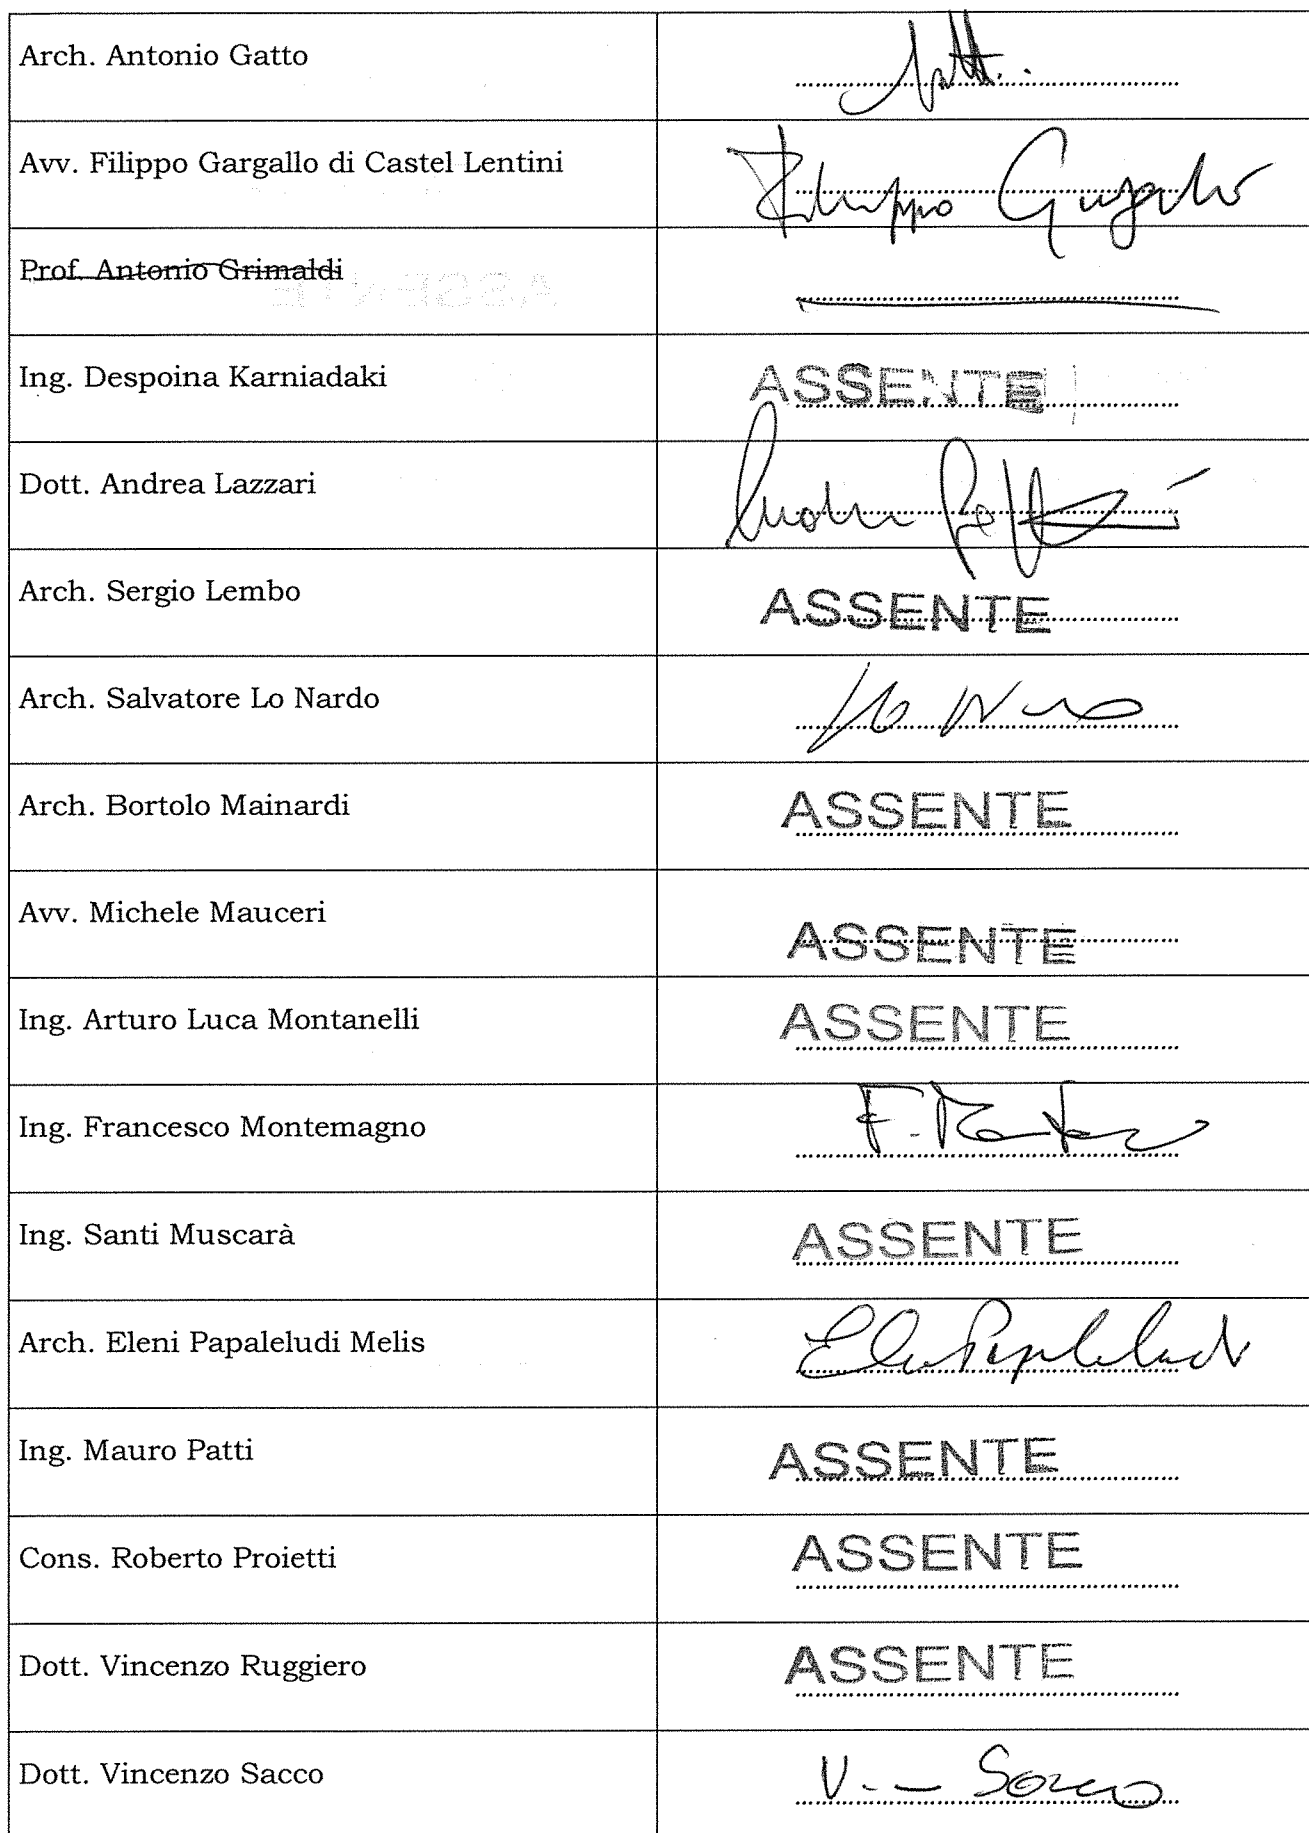 Arch. Antonio Gatto
Avv. Filippo Gargallo di Castel Lentini
Filippo Gargallo
Prof. Antonio Grimaldi
Ing. Despoina Karniadaki
ASSENTE
Dott. Andrea Lazzari
Arch. Sergio Lembo
ASSENTE
Arch. Salvatore Lo Nardo
Arch. Bortolo Mainardi
ASSENTE
Avv. Michele Mauceri
ASSENTE
Ing. Arturo Luca Montanelli
ASSENTE
Ing. Francesco Montemagno
Ing. Santi Muscarà
ASSENTE
Arch. Eleni Papaleludi Melis
Ing. Mauro Patti
ASSENTE
Cons. Roberto Proietti
ASSENTE
Dott. Vincenzo Ruggiero
ASSENTE
Dott. Vincenzo Sacco
V. Sacco